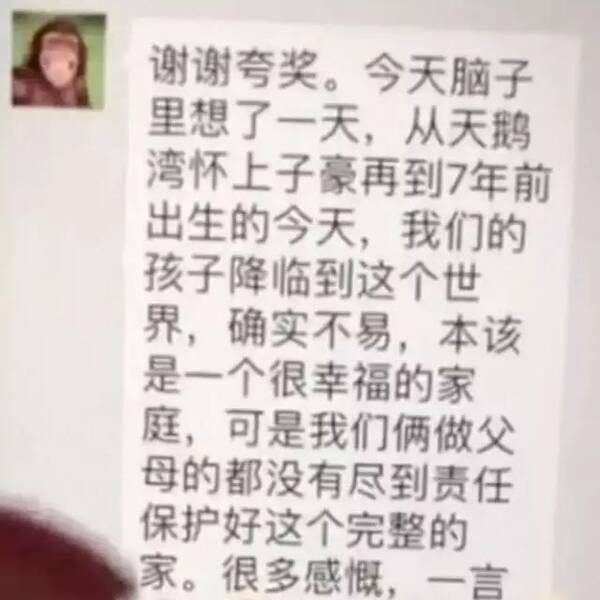 谢谢夸奖。今天脑子
里想了一天，从天鹅
湾怀上子豪再到7年前
出生的今天，我们的
孩子降临到这个世
界，确实不易，本该
是一个很幸福的家
庭，可是我们俩做父
母的都没有尽到责任
保护好这个完整的
家。很多感慨，一言